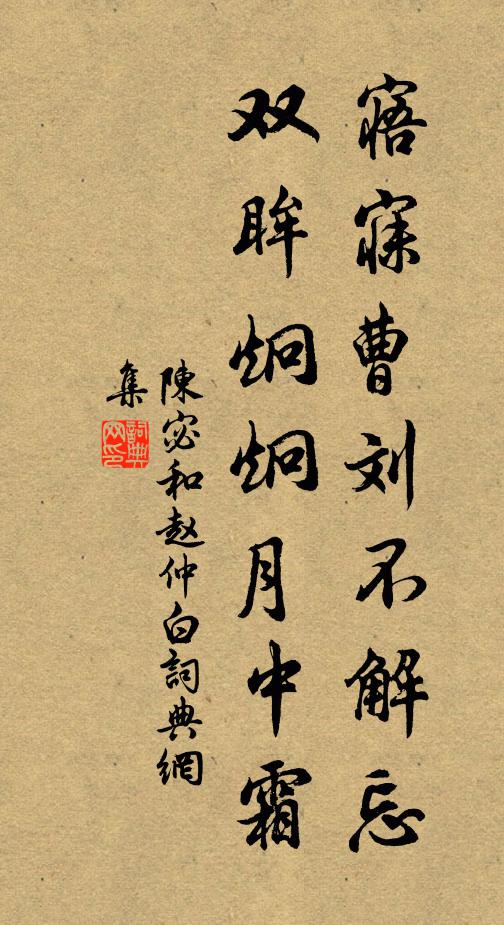 寤寐曹刘不解忘
双眸炯炯月中霜
陳宓和赵仲白詞典網
集
詞典网印